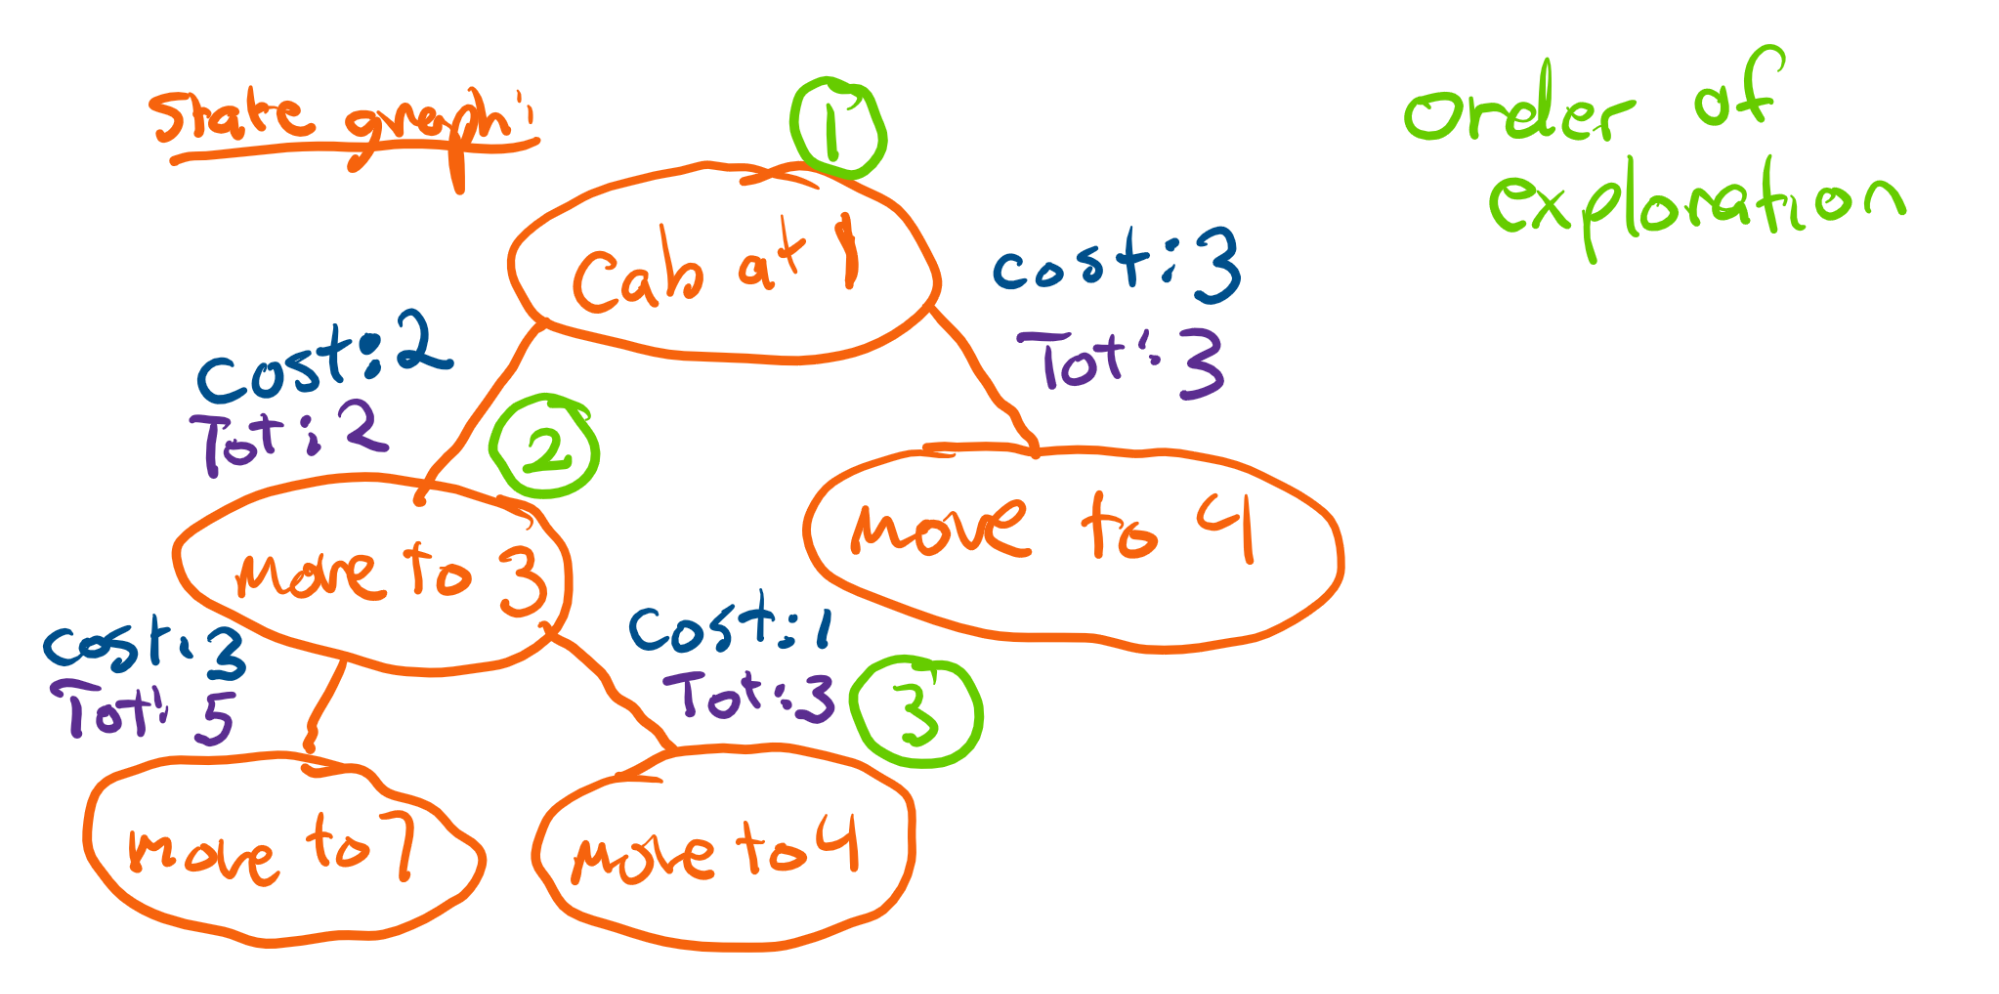 State graph:
1
order of
exploration
Cab at 1
cost: 3
Tot: 3
Cost: 2
Tot: 2
2
move to 3
move to 4
cost: 3
Tot: 5
Cost: 1
Tot: 3
3
move to 7
move to 4